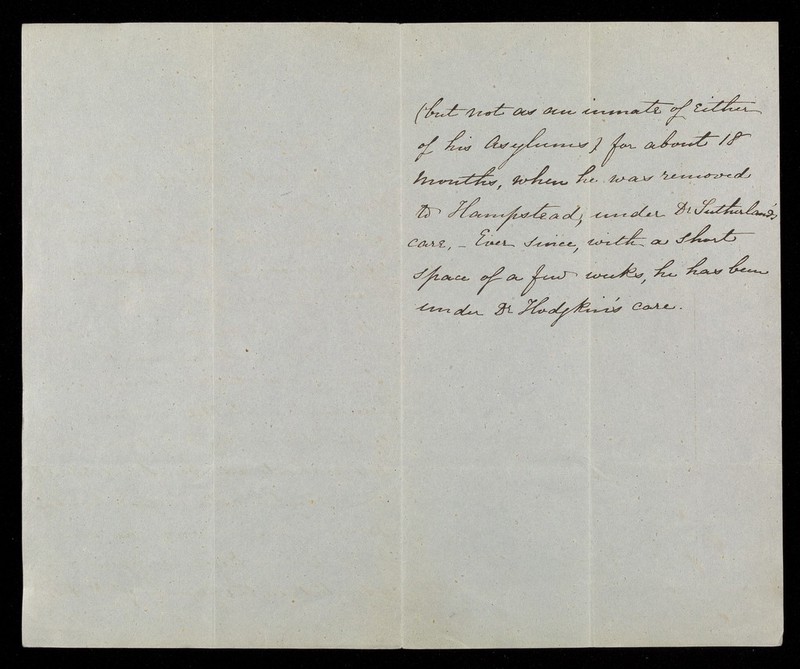 (but not as an inmate of either
of his Asylums) for about 18
Months, when he was removed
to Hampstead, under Dr Sutherland's
care. - Ever since, with a short
space of a few weeks, he has been
under Dr Hodgkin's care.